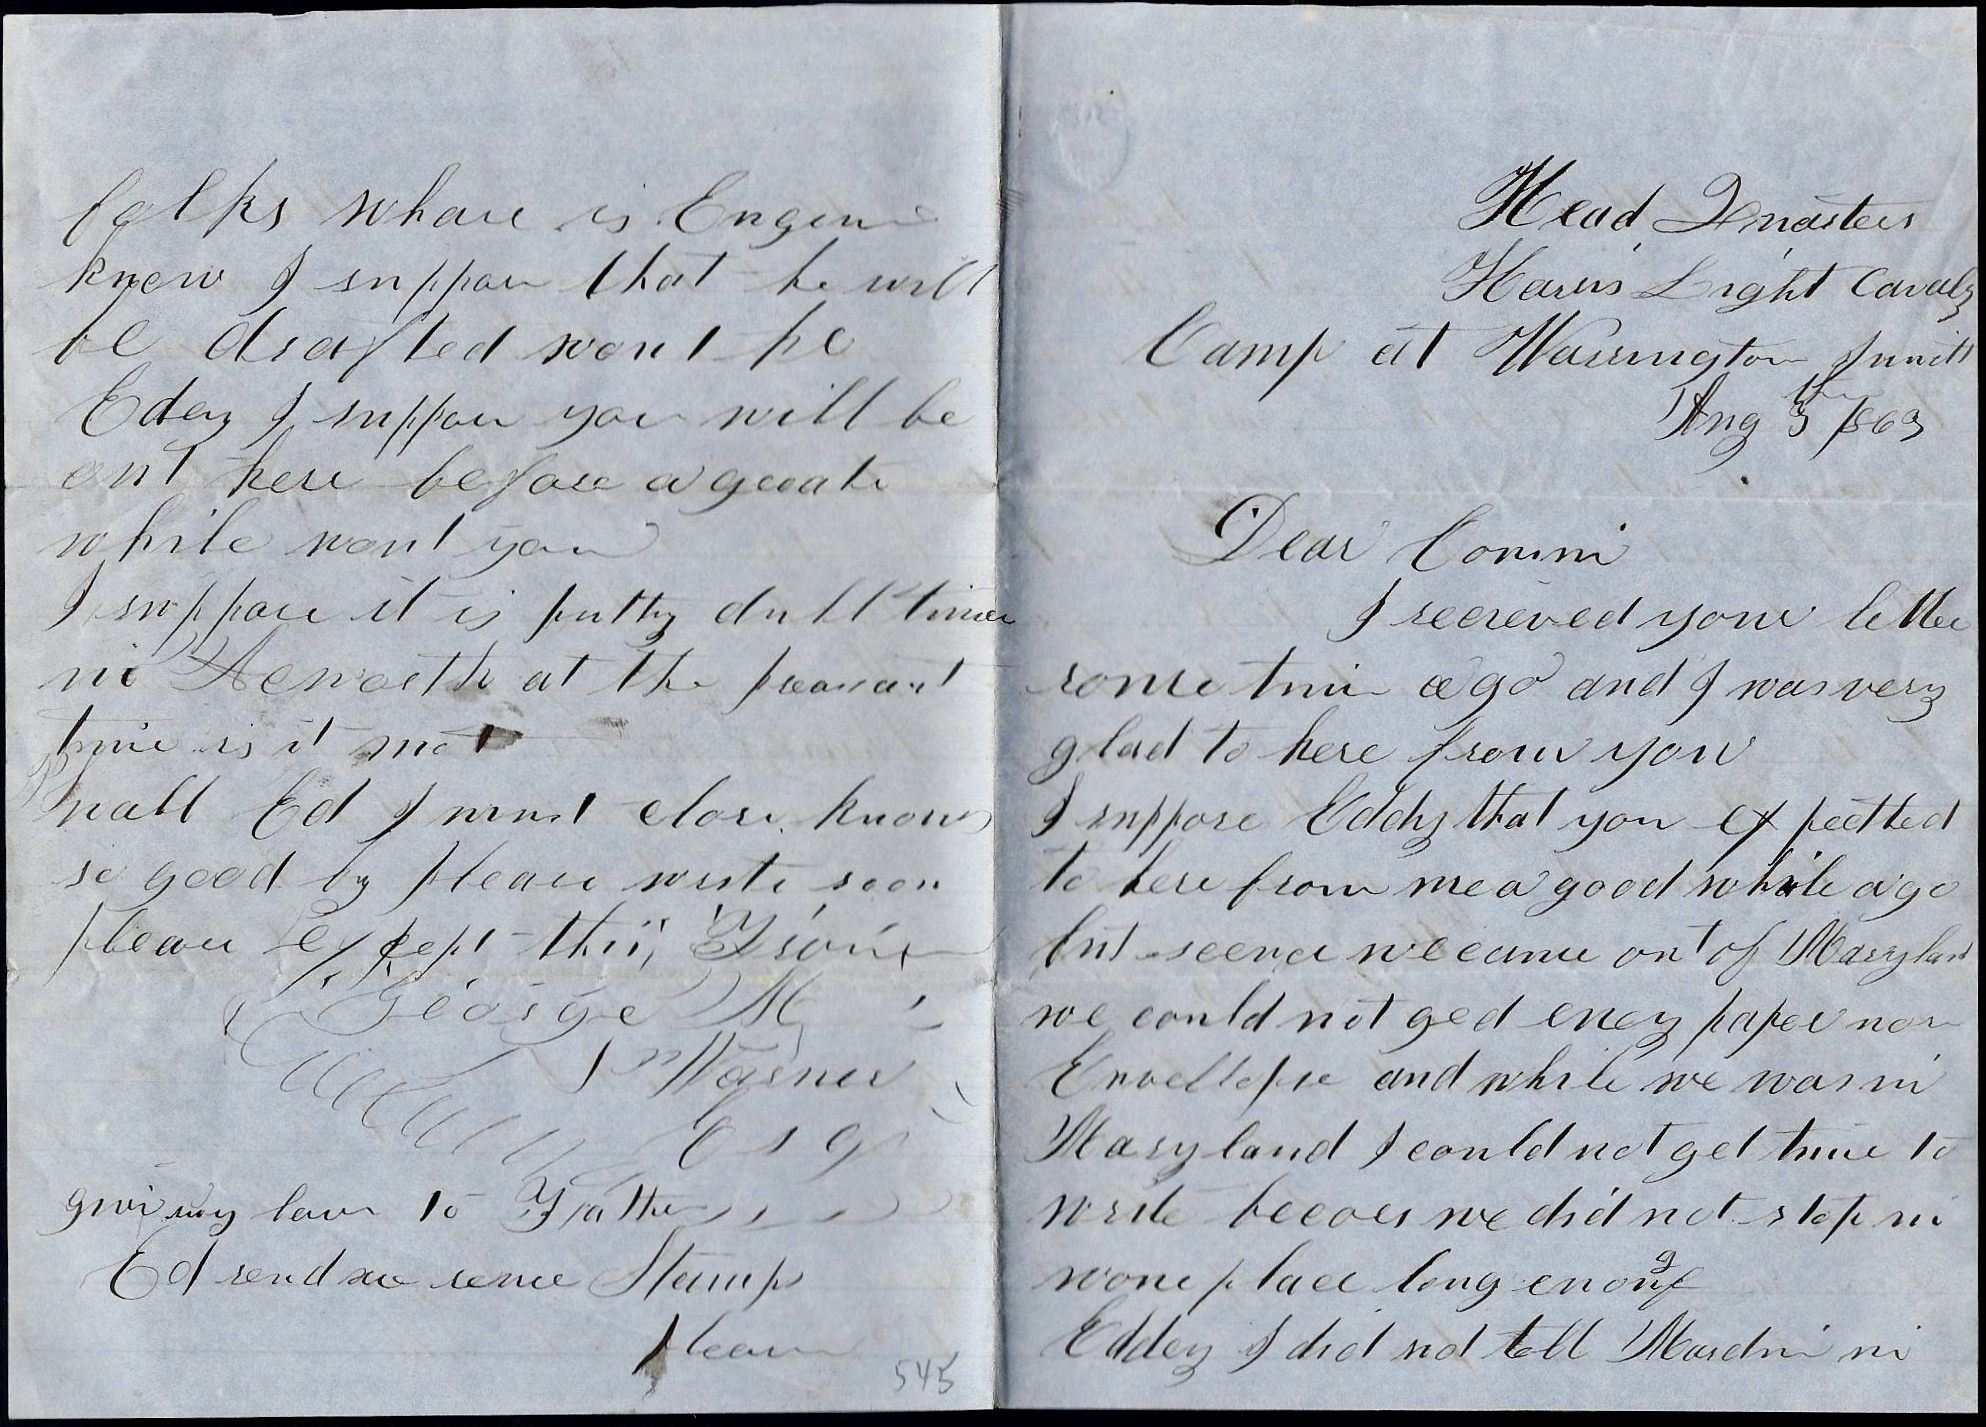 Head Qmarters
Harris Light Cavaly
Camp at Warrington Junctt
Aug 5th 1863
Dear Cousin
I recreved your letter
some time ago and I was very
glad to here from you
I suppose Eddy that you expectted
to here from me a good while ago
but seence we came out of Maryland
we could not ged eney paper nor
Envellopse and while we was in
Maryland I could not get time to
write becoes we did not stop in
wone place long enougf
Eddey I did not tell Mardin in
folks whare is Eugene
know I suppose that he will
be drafted wont he
Edey I suppose you will be
out here before a greate
while wont you
I suppose it is putty dull times
in Acworth at the preasant
time is it not
wall Ed I must close know
so good by please write soon
please exsept this From
George M
Warner
Esq
give my love to Father
Ed send me some Stamps
please
545